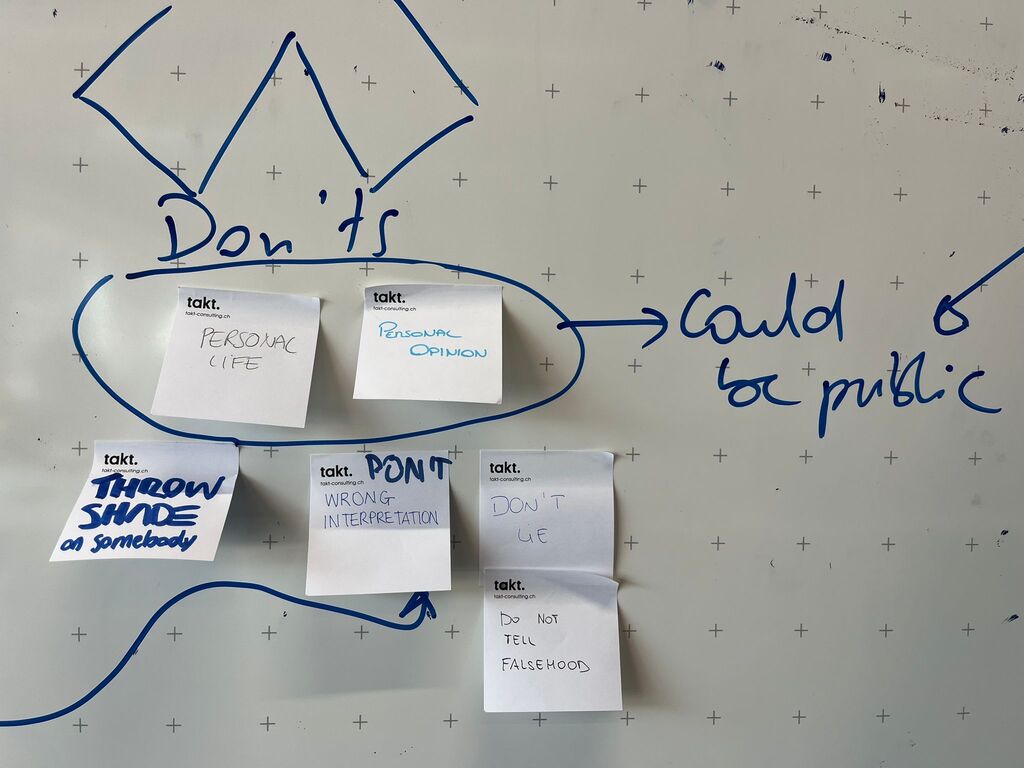 Don'ts
takt.
takt-consulting.ch
PERSONAL
LIFE
takt.
takt-consulting.ch
PERSONAL
OPINION
Could
be public
takt.
takt-consulting.ch
THROW
SHADE
on somebody
takt.
takt-consulting.ch
DON'T
WRONG
INTERPRETATION
takt.
takt-consulting.ch
DON'T
LIE
takt.
takt-consulting.ch
DO NOT
TELL
FALSEHOOD